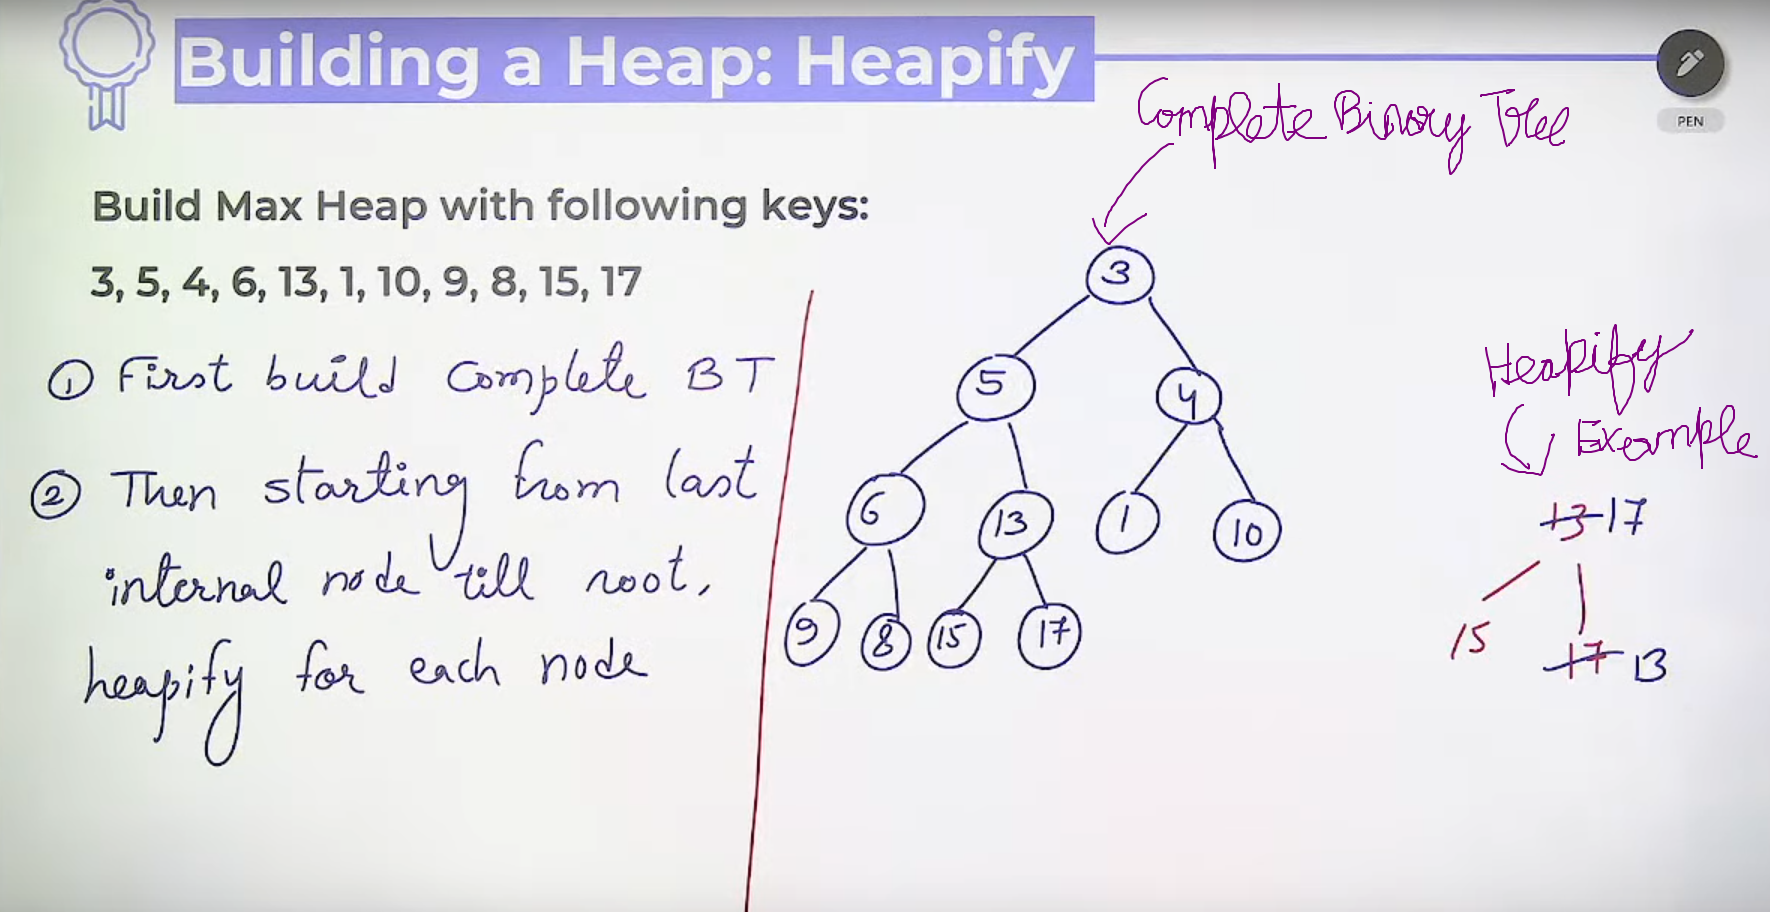 Building a Heap: Heapify
PEN
Complete Binary Tree
Build Max Heap with following keys:
3, 5, 4, 6, 13, 1, 10, 9, 8, 15, 17
① First build Complete BT
② Then starting from last
internal node till root,
heapify for each node
3
5 4
6 13 1 10
9 8 15 17
Heapify
Example
13 17
15 17 13